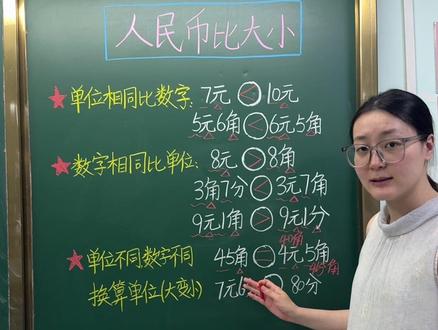 人民币比大小
★单位相同比数字：7元＜10元
5元6角＜6元5角
★数字相同比单位：8元＞8角
3角7分＜3元7角
9元1角＞9元1分
40角
★单位不同数字不同 45角＝4元5角
45角
换算单位(大变小) 7元 80分